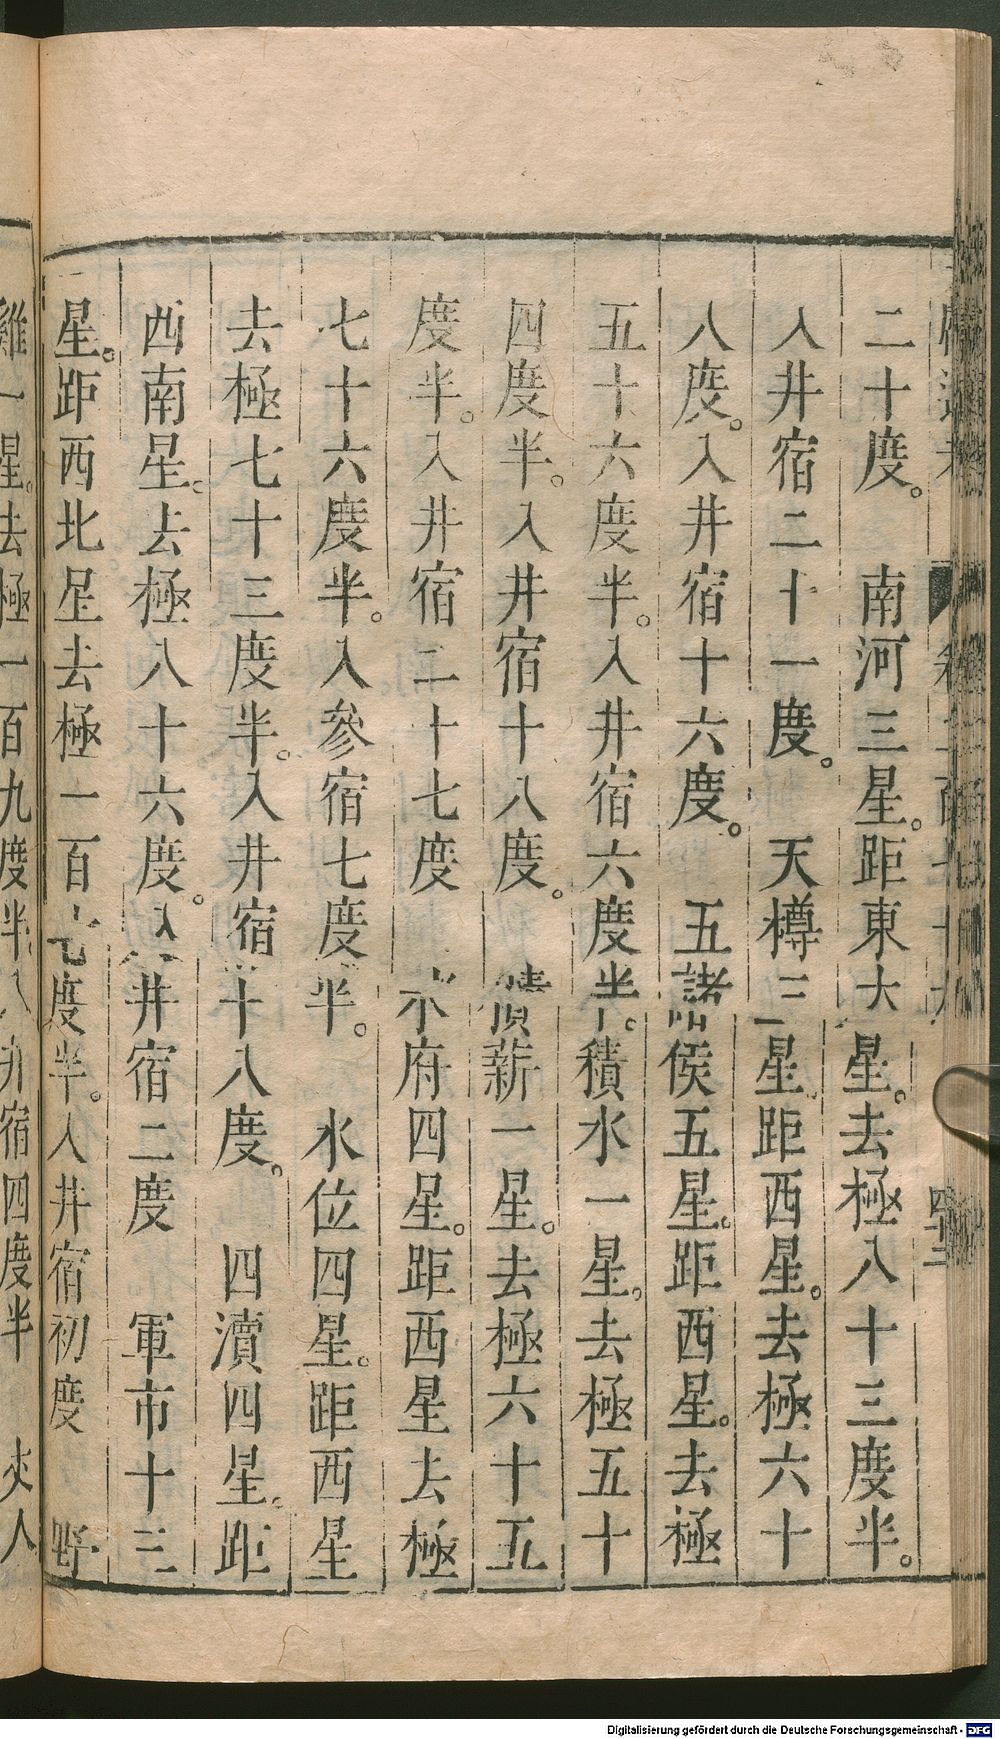 二十度。　南河三星。距東大星。去極八十三度半。
入井宿二十一度。　天樽三星距西星。去極六十
八度。入井宿十六度。　五諸侯五星。距西星。去極
五十六度半。入井宿六度半。積水一星。去極五十
四度半。入井宿十八度。　積薪一星。去極六十五
度半。入井宿二十七度　水府四星。距西星去極
七十六度半。入參宿七度半。　水位四星。距西星
去極七十三度半。入井宿十八度。　四瀆四星。距
西南星。去極八十六度。入井宿二度　軍市十三
星。距西北星去極一百七度半。入井宿初度　野
雞一星。去極一百九度半入井宿四度半　夾人
Digitalisierung gefördert durch die Deutsche Forschungsgemeinschaft - DFG